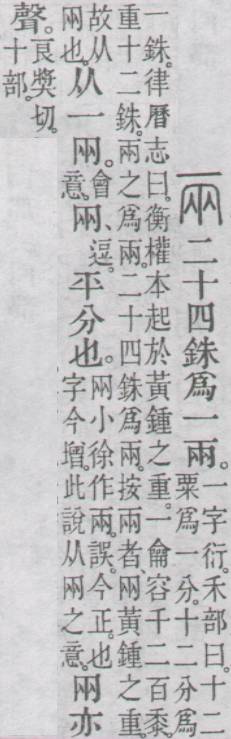 兩 二十四銖爲一兩。
一字衍。禾部曰。十二
粟爲一分。十二分爲
一銖。律曆志曰。衡權本起於黃鍾之重。一龠容千二百黍。
重十二銖。兩之爲兩。二十四銖爲兩。按兩者、㒳黃鍾之重。
故从
㒳也。
从一㒳。
會
意。
㒳、
逗。
平分也。
㒳小徐作兩。誤。今正。也
字今增。此說从㒳之意。
㒳亦
聲。
良奬切。
十部。